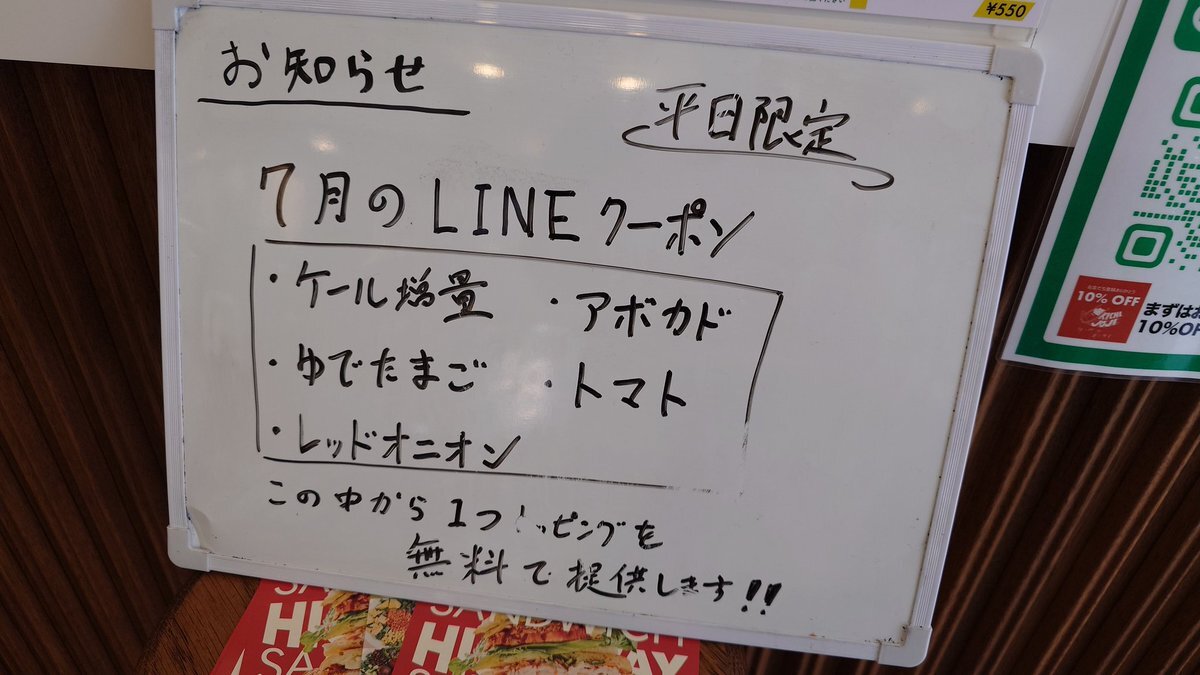 ¥550
お知らせ
平日限定
7月のLINEクーポン
・ケール増量
・アボカド
・ゆでたまご
・トマト
・レッドオニオン
この中から1つトッピングを
無料で提供します!!
10% OFF
まずはお
10%OF
SANDWICH